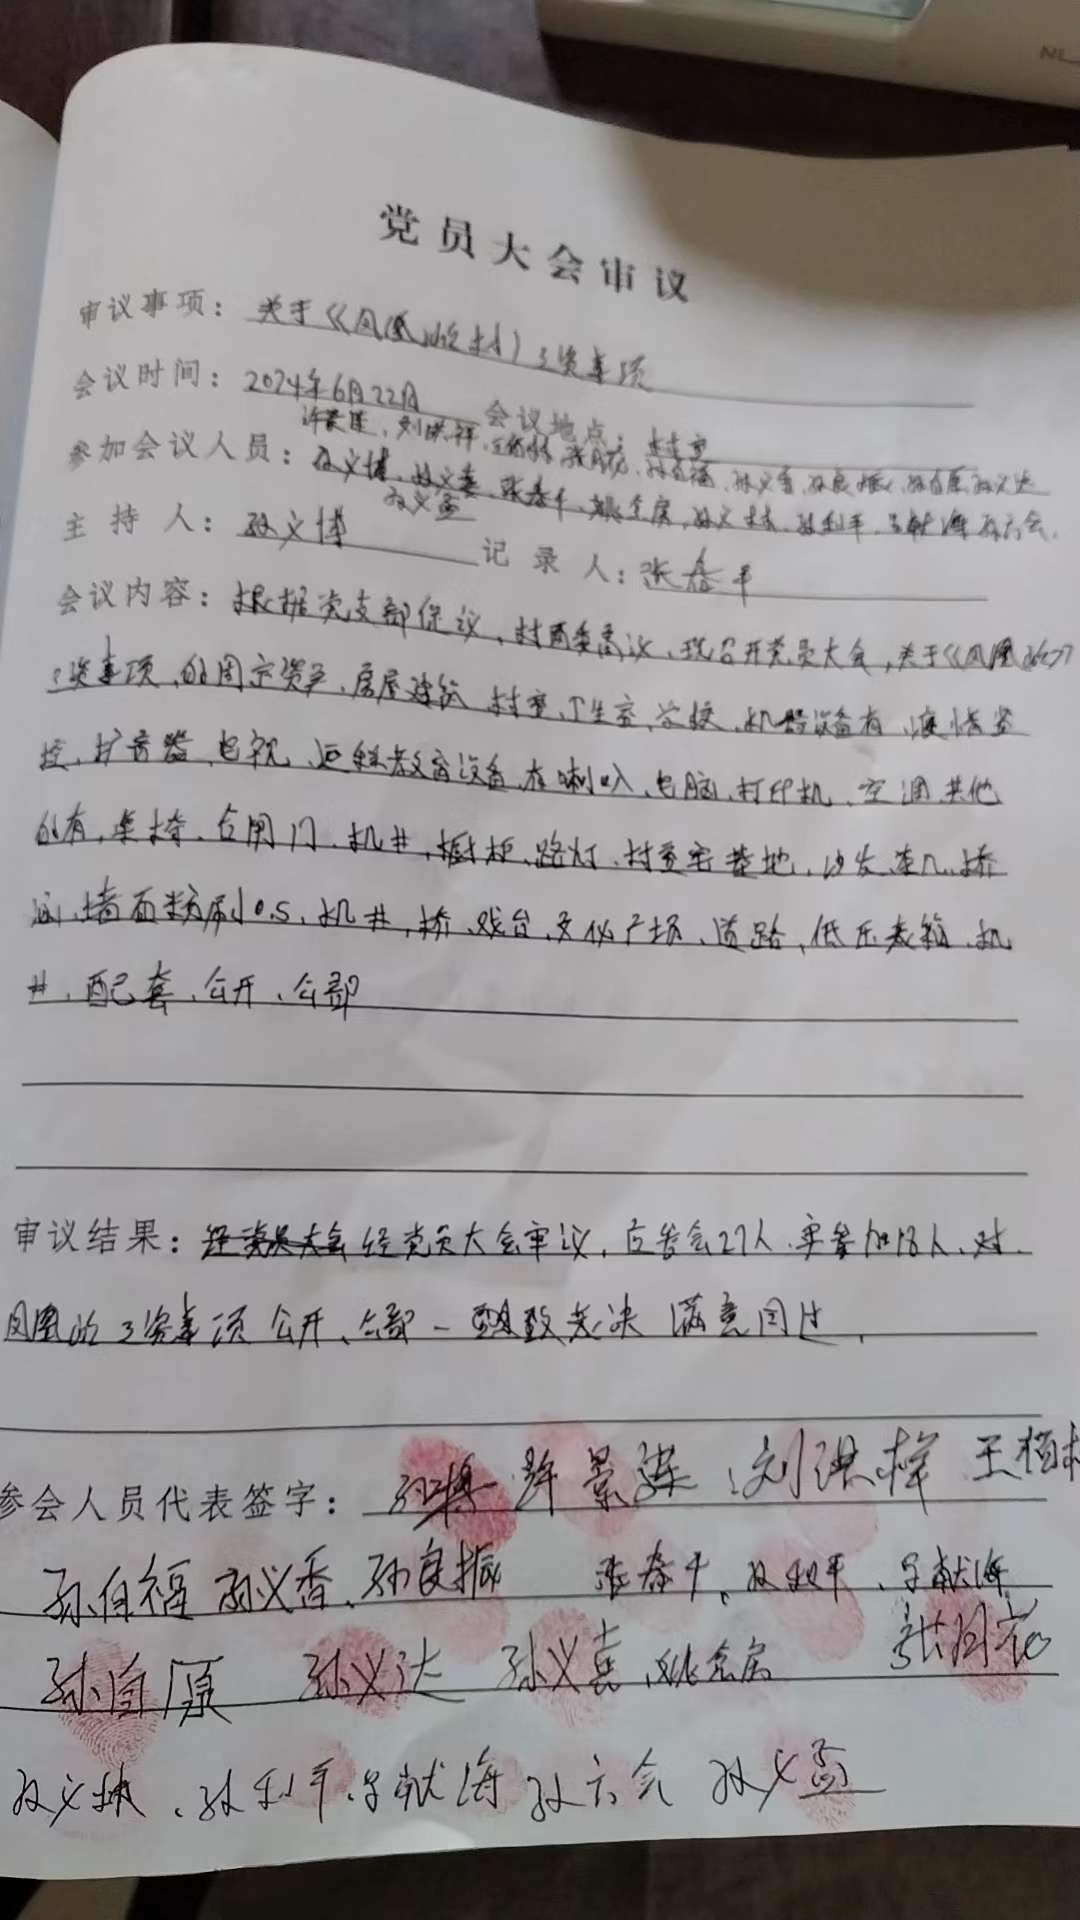 NL
党员大会审议
审议事项：关于《凤凰岭村》3资事项
会议时间：2024年6月22日 会议地点：
许景莲、刘洪祥、王柏林、张月花、孙自福、孙义香、孙良振、孙自原、孙义达
参加会议人员：孙义博、孙义喜、张春平、姚念房、孙义林、孙利平、吕献海、孙六会、
孙义盈
主持人：孙义博 记录人：张春平
会议内容：根据党支部保议，村两委商议，现召开党员大会，关于《凤凰岭》
3资事项，的固定资产、房屋建筑 村室、卫生室、学校、机器设备有、疫情监
控，扩音器、电视、远程教育设备、大喇叭、电脑、打印机、空调、其他
的有，桌椅、合闸门、机井，橱柜、路灯、村委宅基地，沙发、茶几、桥
涵、墙面粉刷0.5、机井，桥、戏台、文化广场、道路，低压表箱、机
井、配套、公开、公部
审议结果：经党员大会 经党员大会审议，应告会27人，实参加18人，对
凤凰岭3资事项 公开、公部 一致表决 满意同过，
参会人员代表签字：孙义博 许景莲、刘洪祥 王柏林
孙自福 孙义香、孙良振 张春平、孙利平、吕献海
孙自原 孙义达 孙义喜、姚念房 张月花
孙义林、孙利平、吕献海 孙六会 孙义盈